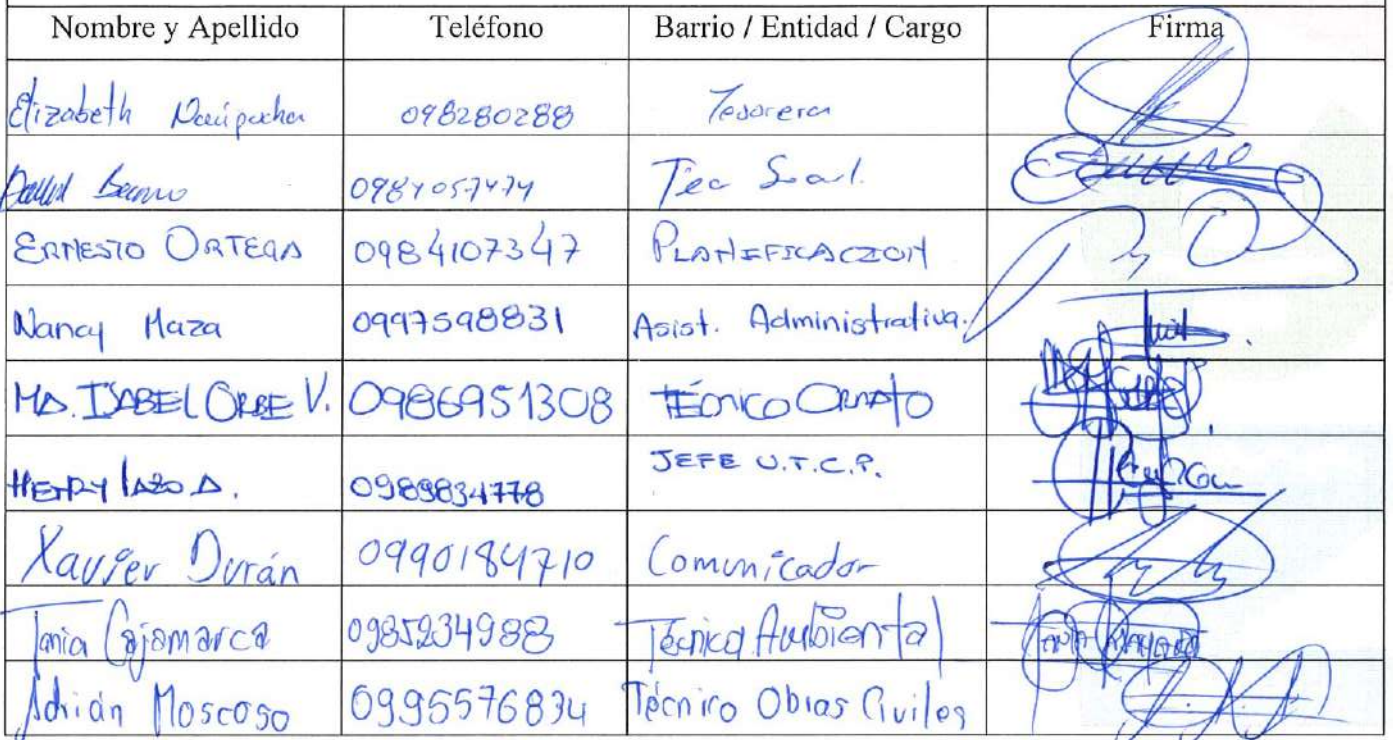 Nombre y Apellido Teléfono Barrio / Entidad / Cargo Firma
Elizabeth 098280288 Tesorera
0984057474 Tec
ERNESTO ORTEGA 0984107347 PLANIFICACION
Nancy Maza 0997598831 Asist. Administrativa.
MA. ISABEL ORBE V. 0986951308 TÉCNICO ORNATO
HENRY LAZO A. 0989834778 JEFE U.T.C.P.
Xavier Durán 0990184710 Comunicador
Tania Cajamarca 0985234988 Técnica Ambiental
Adrián Moscoso 0995576834 Técnico Obras Civiles